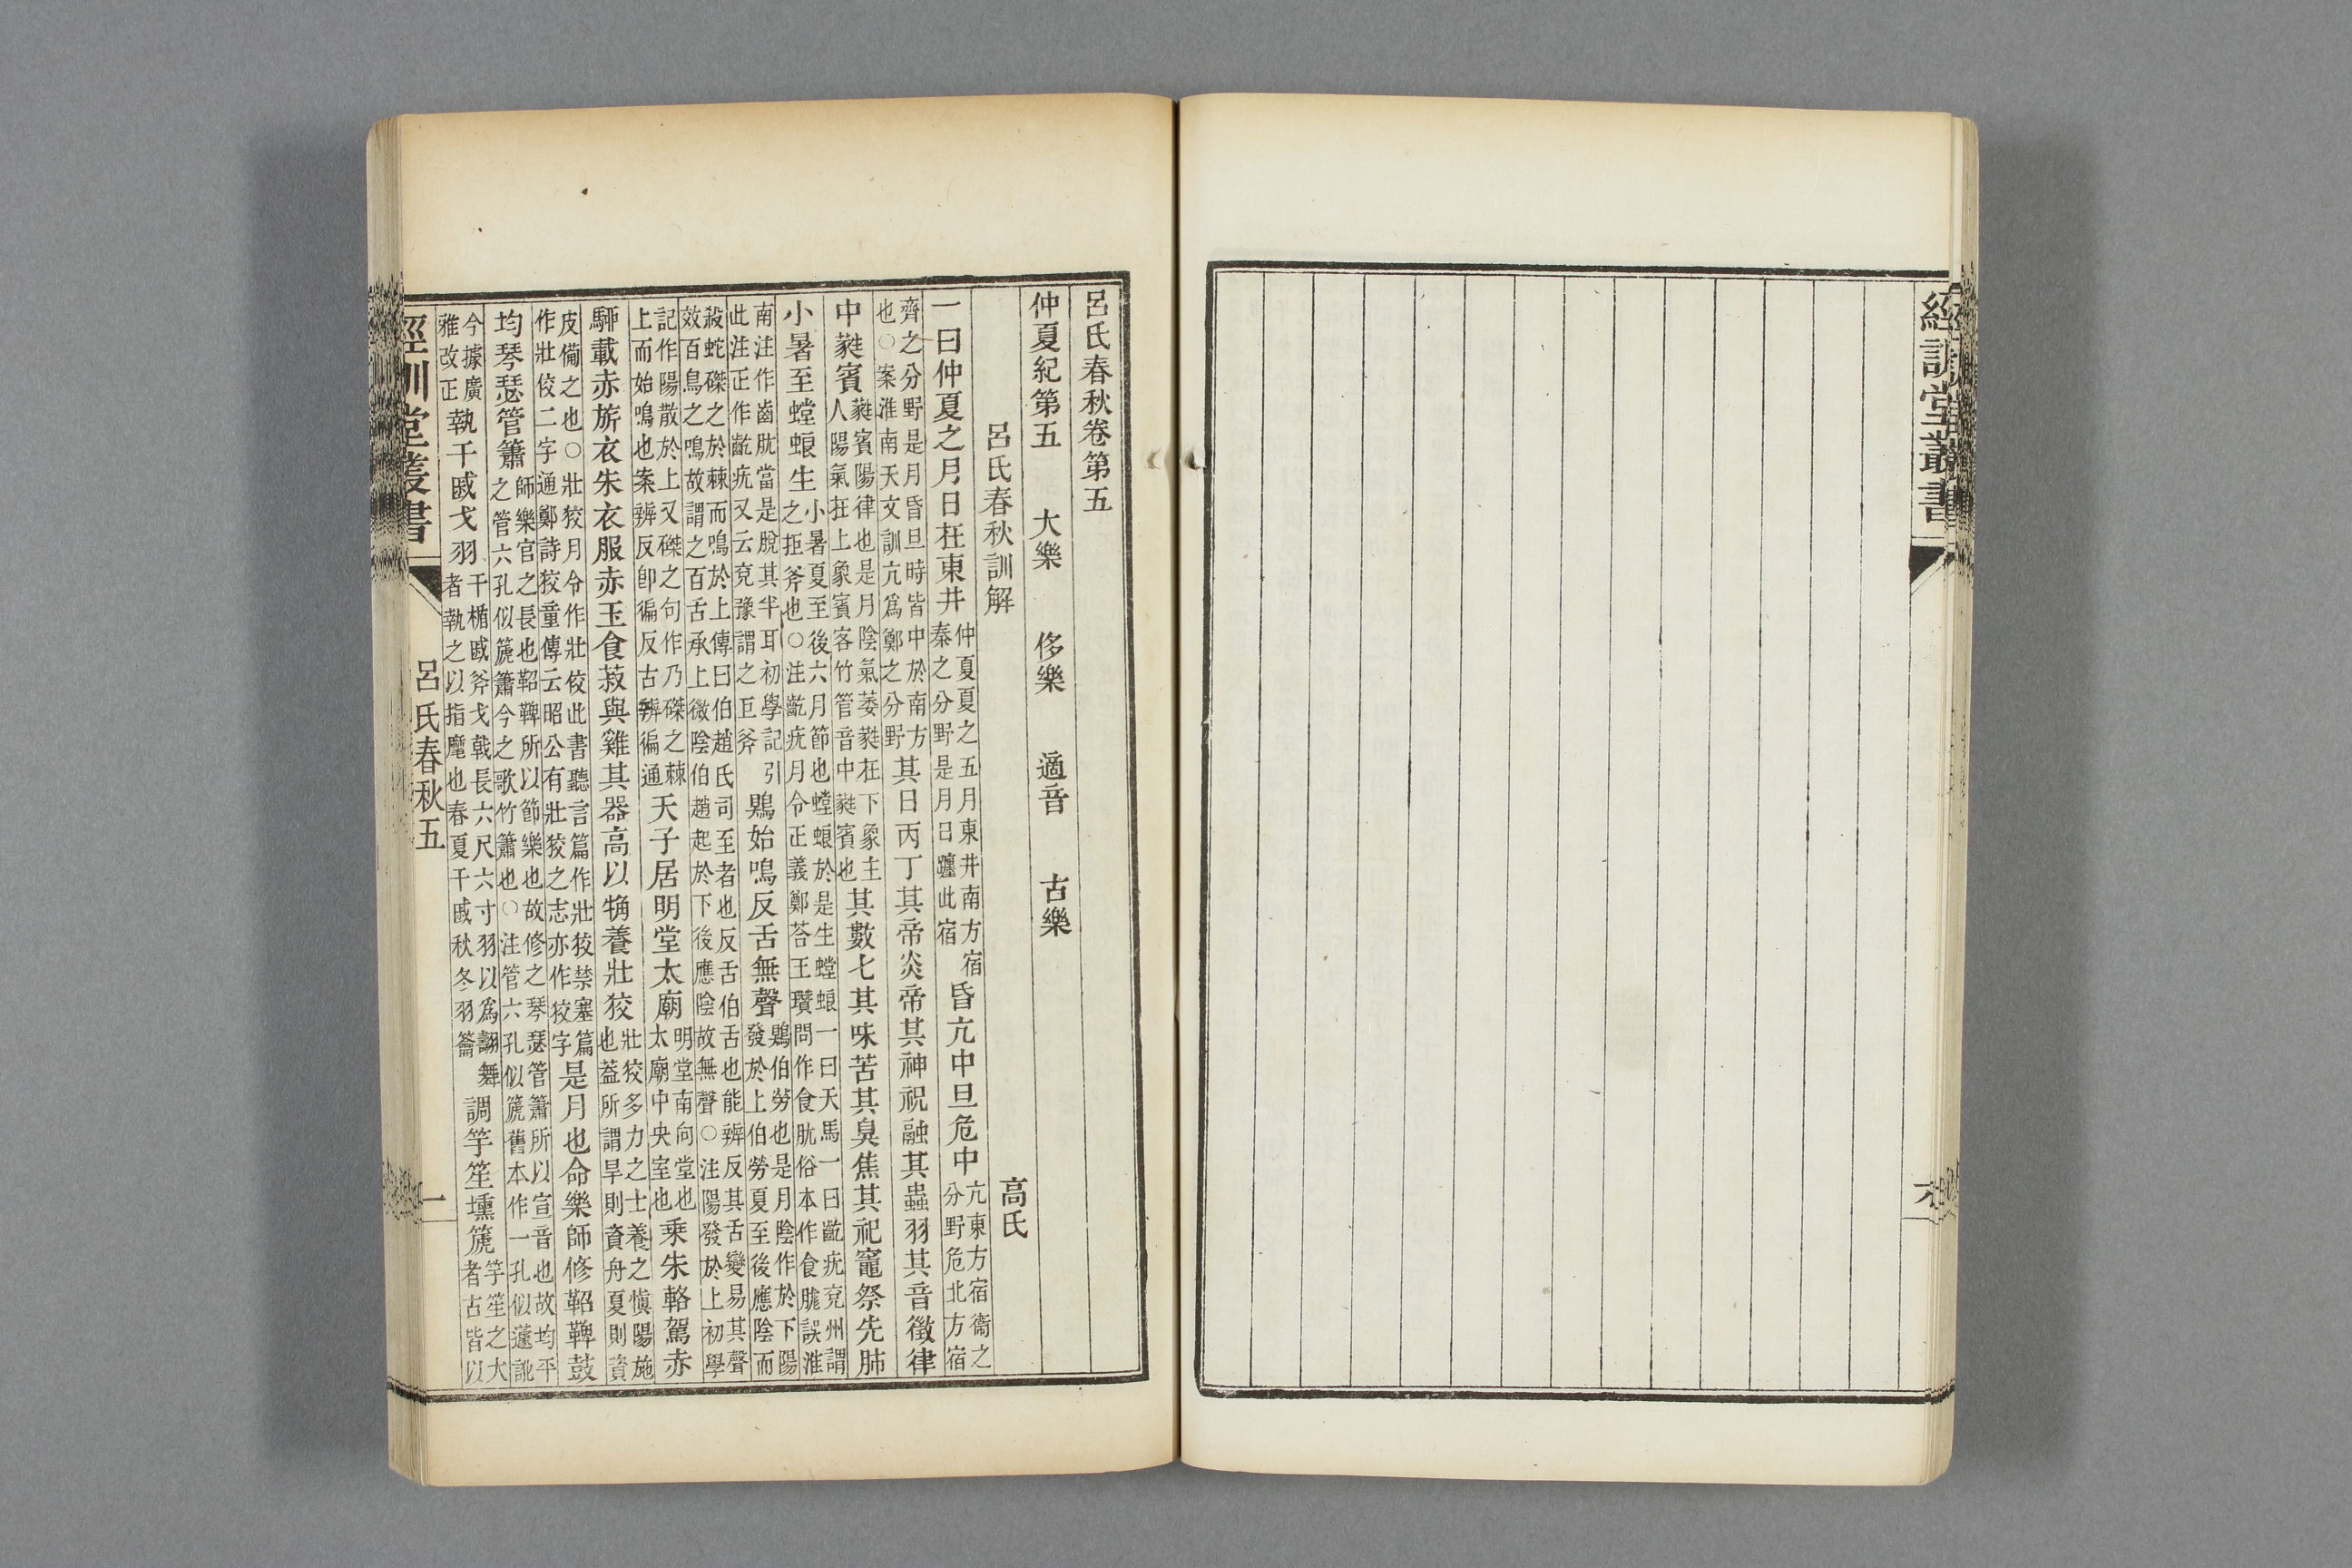 經訓堂叢書
呂氏春秋卷第五
仲夏紀第五　大樂　侈樂　適音　古樂
呂氏春秋訓解　高氏
一曰仲夏之月日在東井仲夏夏之五月東井南方宿秦之分野是月日躔此宿昏亢中旦危中亢東方宿衞之分野危北方宿
齊之分野是月昏旦時皆中於南方也○案淮南天文訓亢爲鄭之分野其日丙丁其帝炎帝其神祝融其蟲羽其音徵律
中蕤賓蕤賓陽律也是月陰氣萎蕤在下象主人陽氣在上象賓客竹管音中蕤賓也其數七其味苦其臭焦其祀竈祭先肺
小暑至螳蜋生小暑夏至後六月節也螳蜋於是生螳蜋一曰天馬一曰齕疣兗州謂之拒斧也○注齕疣月令正義鄭荅王瓚問作食肬俗本作食誤淮
南注作齒肬當是脫其半耳初學記引此注正作齕疣又云兗豫謂之巨斧鶪始鳴反舌無聲鶪伯勞也是月陰作於下陽發於上伯勞夏至後應陰而
殺蛇磔之於棘而鳴於上傳曰伯趙氏司至者也反舌伯舌也能辨反其舌變易其聲效百鳥之鳴故謂之百舌承上微陰伯趙起於下後應陰故無聲○注陽發於上初學
記作陽散於上又磔之句作乃磔之棘上而始鳴也案辨反卽徧反古辨徧通天子居明堂太廟明堂南向堂也太廟中央室也乘朱輅駕赤
騮載赤旂衣朱衣服赤玉食菽與雞其器高以觕養壯狡壯狡多力之士養之愼陽施也蓋所謂旱則資舟夏則資
皮備之也○壯狡月令作壯佼此書聽言篇作壯狡禁塞篇作壯佼二字通鄭詩狡童傳云昭公有壯狡之志亦作狡字是月也命樂師修鞀鞞鼓
均琴瑟管簫師樂官之長也鞀鞞所以節樂也故修之琴瑟管簫所以宣音也故均平之管六孔似篪簫今之歌竹簫也○注管六孔似篪舊本作一孔似籧訛
今據廣雅改正執干戚戈羽干楯戚斧戈戟長六尺六寸羽以爲翿舞者執之以指麾也春夏干戚秋冬羽籥調竽笙壎篪竽笙之大者古皆以
經訓堂叢書　呂氏春秋五　一